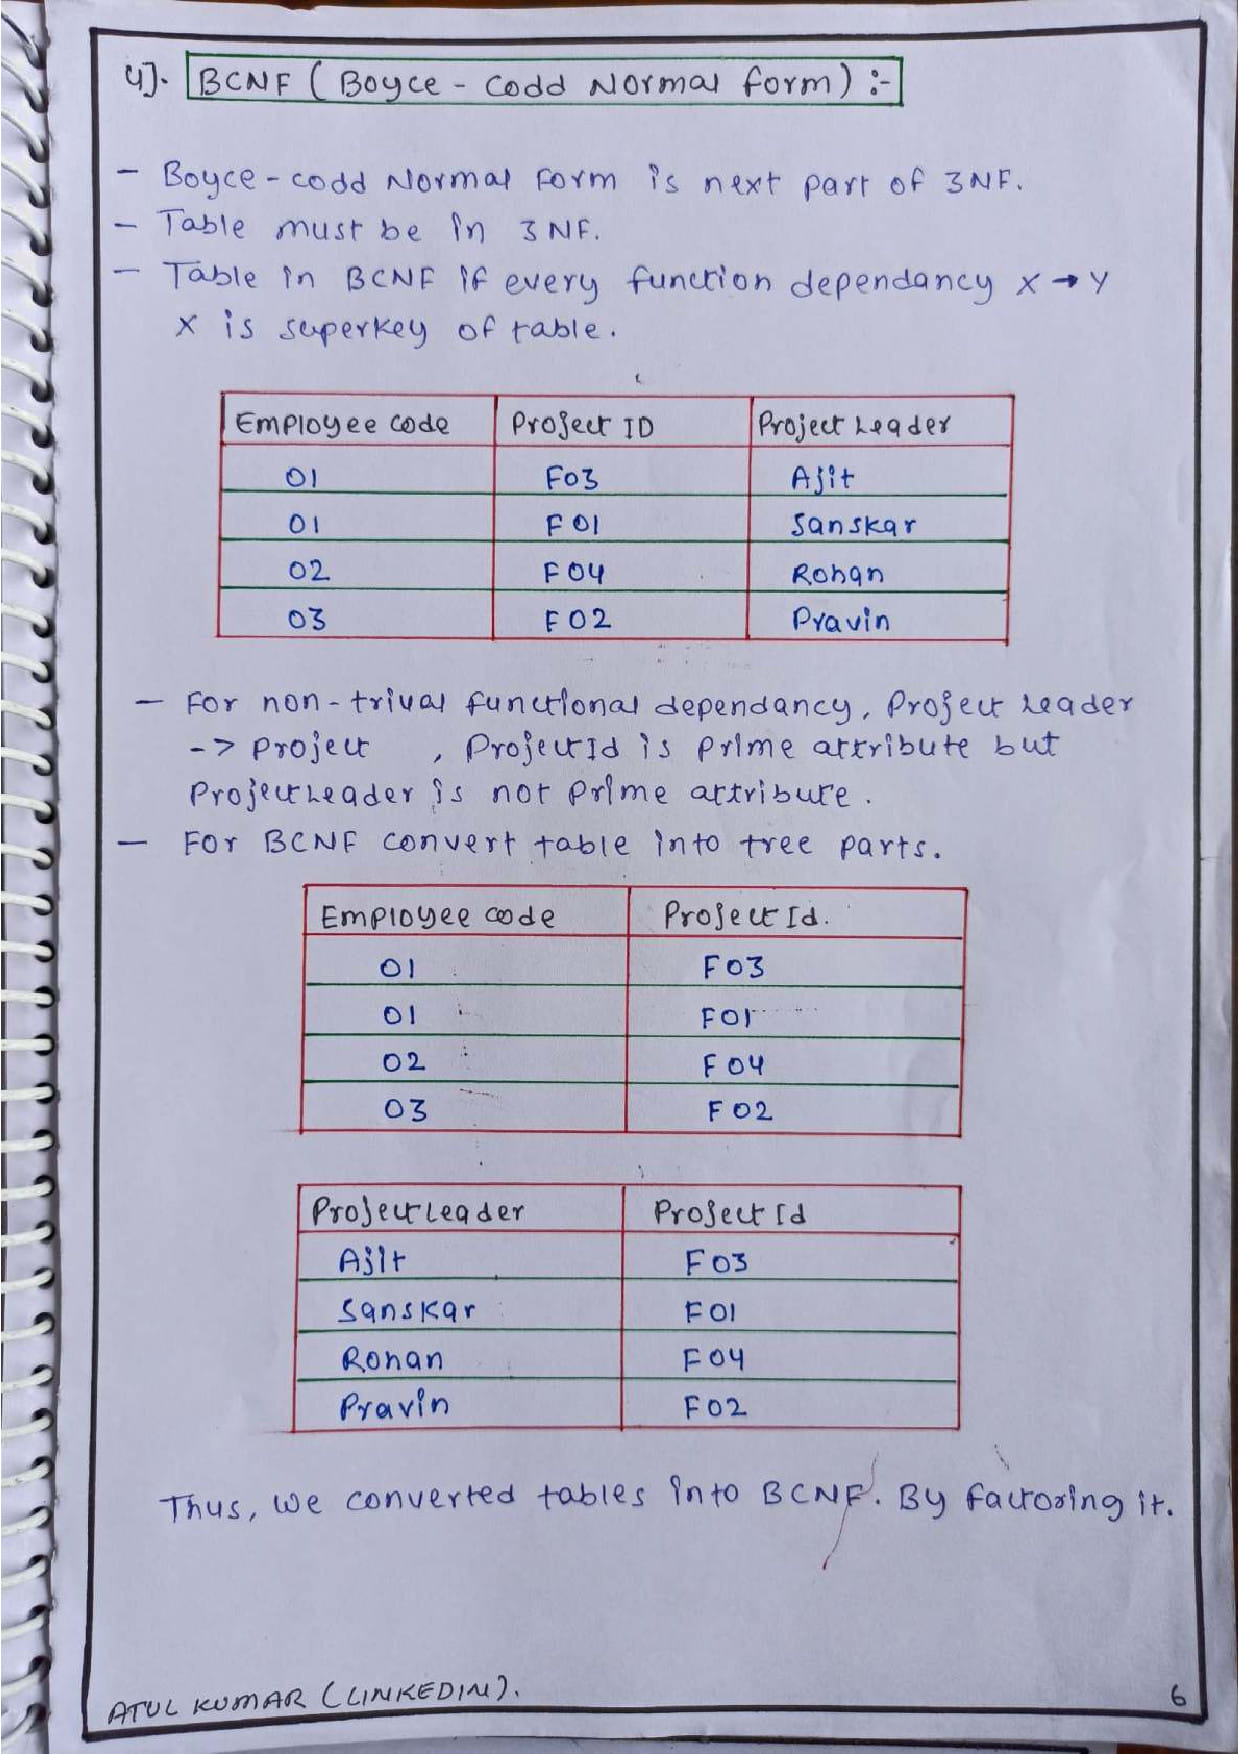 4]. BCNF ( Boyce - Codd Normal form ) :-
- Boyce - codd Normal Form is next part of 3NF.
- Table must be in 3NF.
- Table in BCNF if every function dependancy X → Y
X is superkey of table.
Employee code Project ID Project Leader
01 F03 Ajit
01 F01 Sanskar
02 F04 Rohan
03 F02 Pravin
- For non - trival functional dependancy, Project Leader
-> Project , ProjectId is Prime attribute but
ProjectLeader is not Prime attribute.
- For BCNF convert table into tree parts.
Employee code Project Id.
01 F03
01 F01
02 F04
03 F02
ProjectLeader Project Id
Ajit F03
Sanskar F01
Rohan F04
Pravin F02
Thus, we converted tables into BCNF. By factoring it.
ATUL KUMAR (LINKEDIN).
6